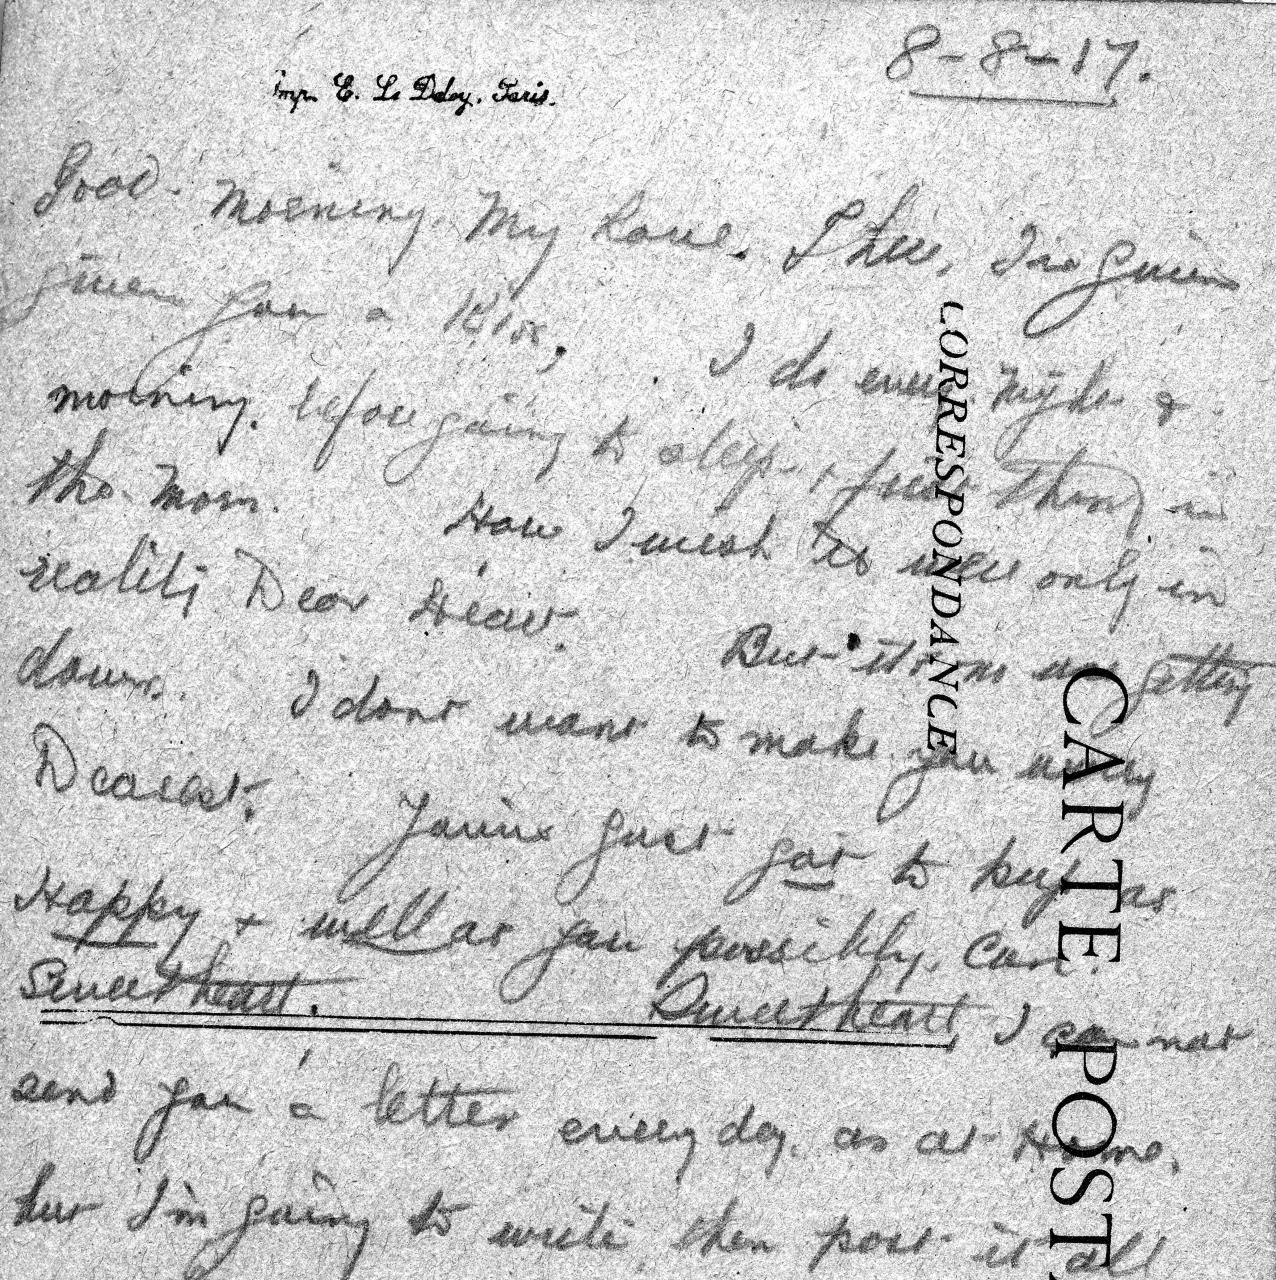 8-8-17.
Imp. E. Le Deley, Paris.
Good. Morning. My Love. There, I've
given you a Kiss, I do every Night &
morning. before going to sleep & first thing in
the Morn. How I wish it were only in
reality Dear Heart. But it's no use getting
down. I dont want to make you
Dearest. You've just got to keep as
Happy & well as you possibly, can.
Sweetheart. Sweetheart, I can not
send you a letter every day, as at Home,
but I'm going to write then post it all
CORRESPONDANCE
CARTE POST